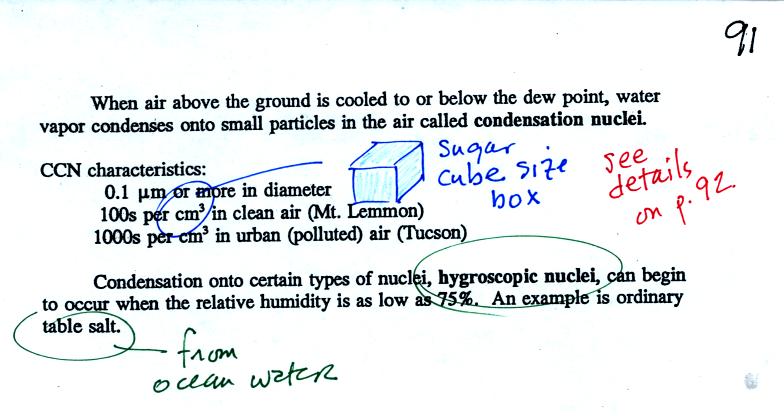 91
When air above the ground is cooled to or below the dew point, water
vapor condenses onto small particles in the air called condensation nuclei.
CCN characteristics:
0.1 µm or more in diameter
100s per cm³ in clean air (Mt. Lemmon)
1000s per cm³ in urban (polluted) air (Tucson)
Sugar
cube size
box
see
details
on p. 92
Condensation onto certain types of nuclei, hygroscopic nuclei, can begin
to occur when the relative humidity is as low as 75%. An example is ordinary
table salt.
from
ocean water